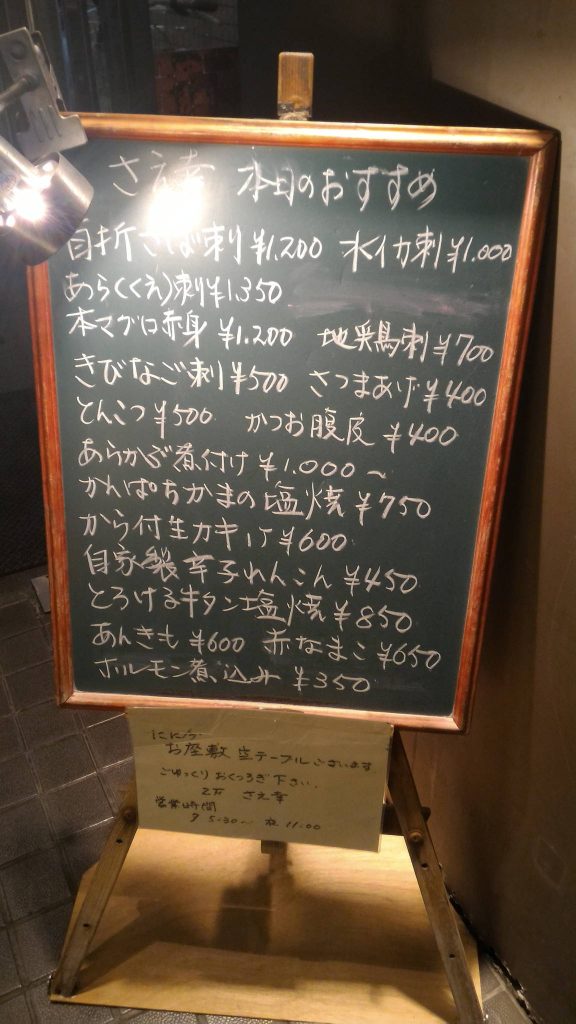 さえ幸 本日のおすすめ
首折さば刺 ¥1.200 水イカ刺 ¥1.000
あら(くえ)刺 ¥1.350
本マグロ赤身 ¥1.200 地鶏刺 ¥700
きびなご刺 ¥500 さつまあげ ¥400
とんこつ ¥500 かつお腹皮 ¥400
あらかぶ煮付け ¥1.000〜
かんぱちかまの塩焼 ¥750
から付生カキ 1ケ ¥600
自家製辛子れんこん ¥450
とろける牛タン塩焼 ¥850
あんきも ¥600 赤なまこ ¥650
ホルモン煮込み ¥350
お座敷 空テーブルございます
ごゆっくりおくつろぎ下さい.
さえ幸
営業時間
夕 5:30〜 夜 11:00